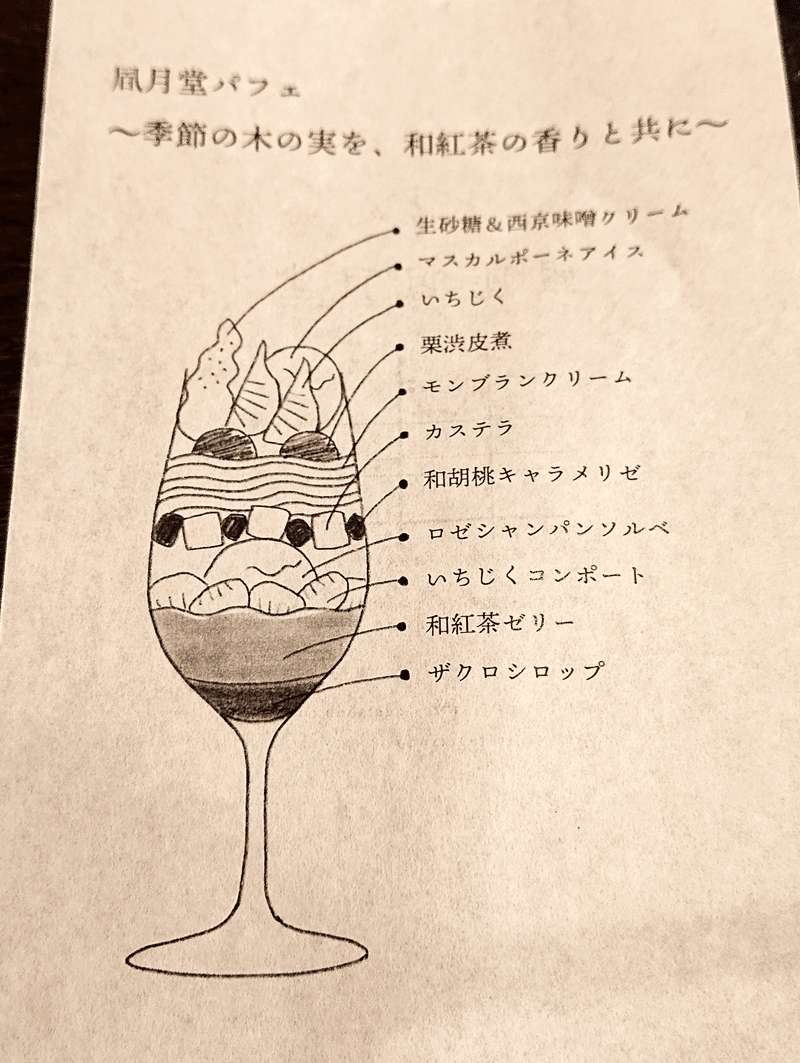 凮月堂パフェ
～季節の木の実を、和紅茶の香りと共に～
生砂糖&西京味噌クリーム
マスカルポーネアイス
いちじく
栗渋皮煮
モンブランクリーム
カステラ
和胡桃キャラメリゼ
ロゼシャンパンソルベ
いちじくコンポート
和紅茶ゼリー
ザクロシロップ